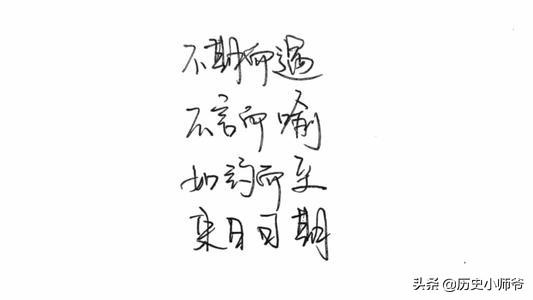 不期而遇
不言而喻
如约而至
来日可期
头条 @历史小师爷